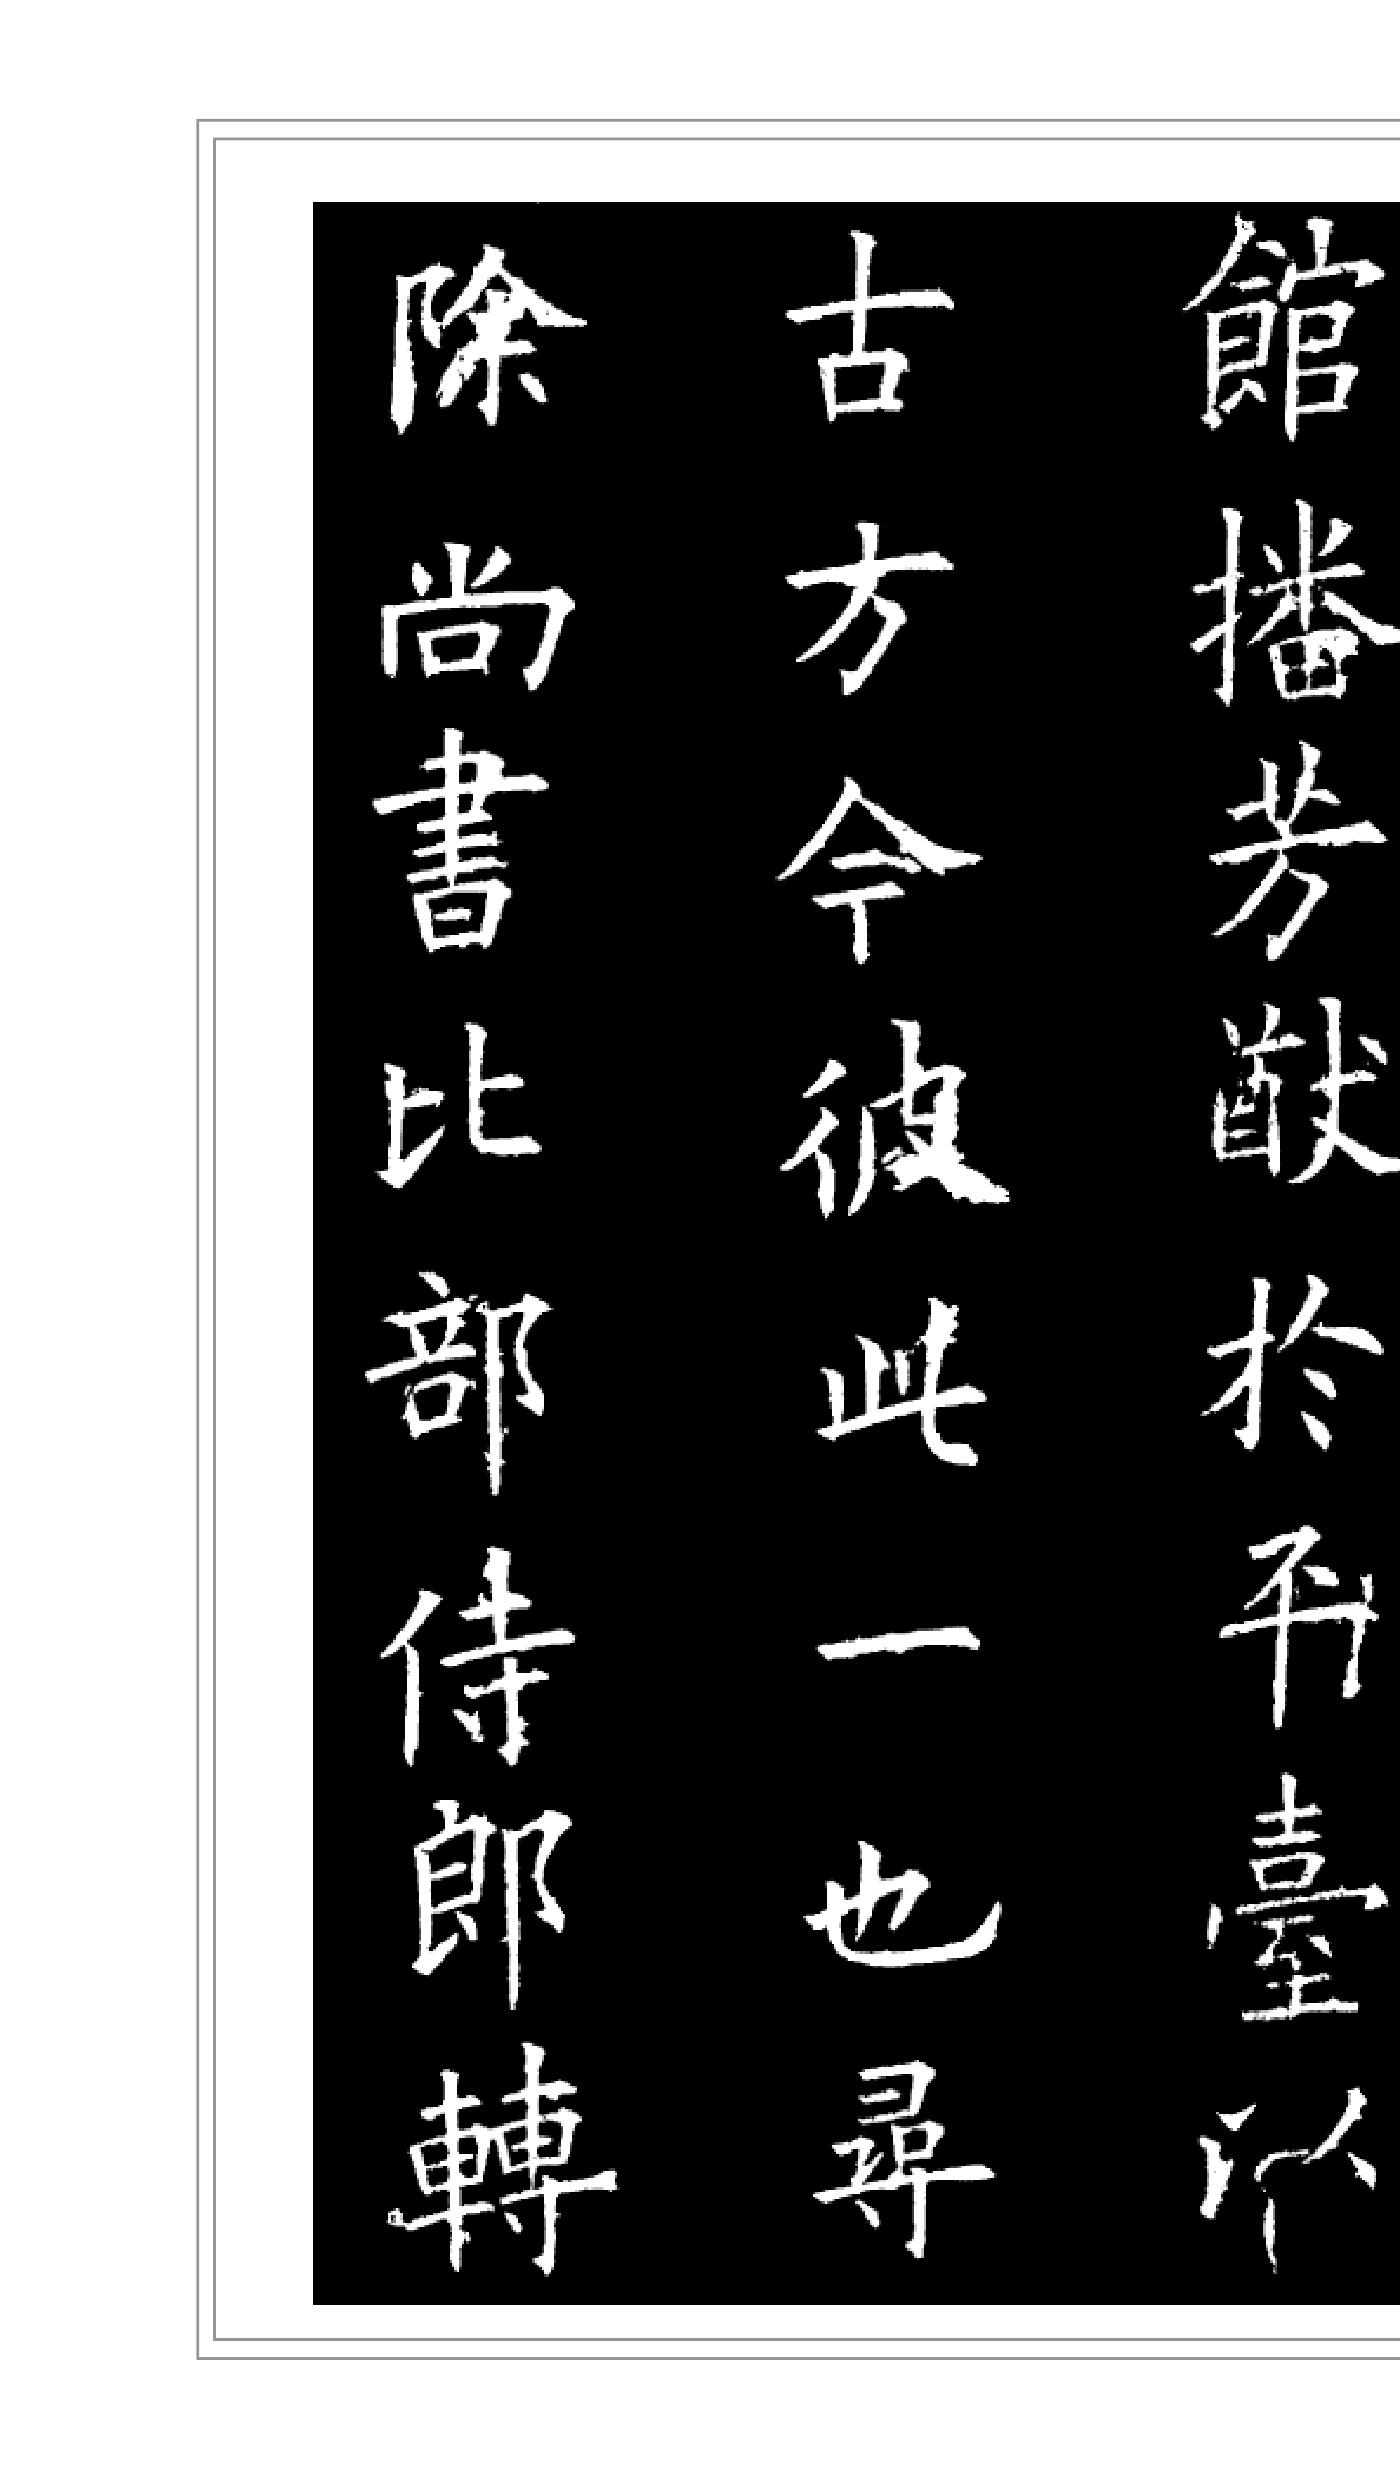 館播芳猷於平臺以
古方今彼此一也尋
除尚書比部侍郎轉